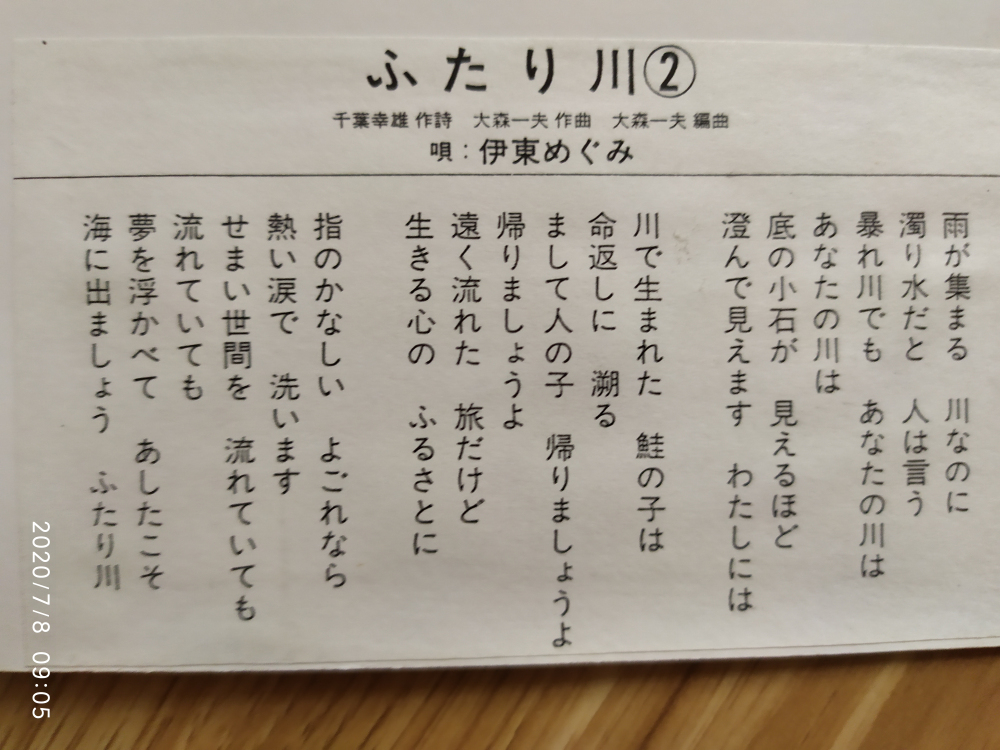 ふたり川②
千葉幸雄 作詩　大森一夫 作曲　大森一夫 編曲
唄：伊東めぐみ
雨が集まる　川なのに
濁り水だと　人は言う
暴れ川でも　あなたの川は
あなたの川は
底の小石が　見えるほど
澄んで見えます　わたしには
川で生まれた　鮭の子は
命返しに　溯る
まして人の子　帰りましょうよ
帰りましょうよ
遠く流れた　旅だけど
生きる心の　ふるさとに
指のかなしい　よごれなら
熱い涙で　洗います
せまい世間を　流れていても
流れていても
夢を浮かべて　あしたこそ
海に出ましょう　ふたり川
2020/7/8 09:05